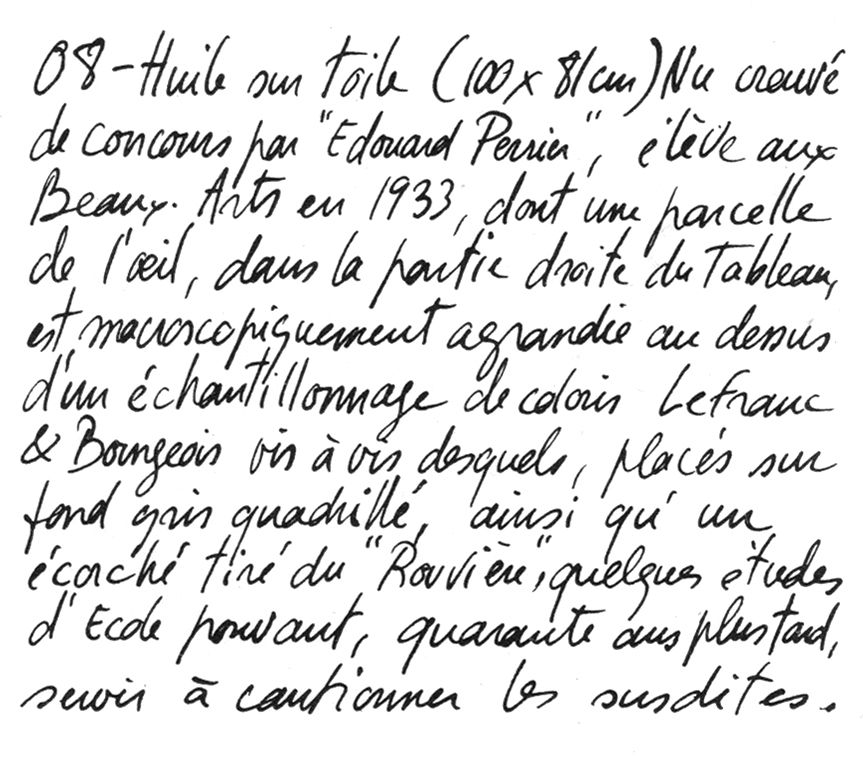 08 - Huile sur toile (100 x 81 cm) Nu crouvé
de concours par "Edouard Perrier", élève aux
Beaux-Arts en 1933, dont une parcelle
de l'œil, dans la partie droite du Tableau,
est macroscopiquement agrandie au dessus
d'un échantillonnage de coloris Lefranc
& Bourgeois vis à vis desquels, placés sur
fond gris quadrillé, ainsi qu'un
écorché tiré du "Rouvière", quelques études
d'Ecole pouvant, quarante ans plus tard,
servir à cautionner les susdites.